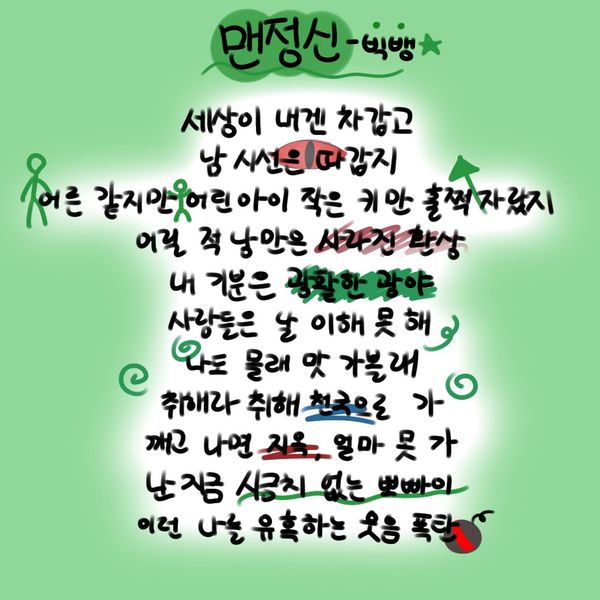 맨정신 - 빅뱅
세상이 내겐 차갑고
남 시선은 따갑지
어른 같지만 어린아이 작은 키만 훌쩍 자랐지
어릴 적 낭만은 사라진 환상
내 기분은 광활한 광야
사람들은 날 이해 못 해
나도 몰래 맛 가볼래
취해라 취해 천국으로 가
깨고 나면 지옥, 얼마 못 가
난 지금 시금치 없는 뽀빠이
이런 나를 유혹하는 웃음 폭탄